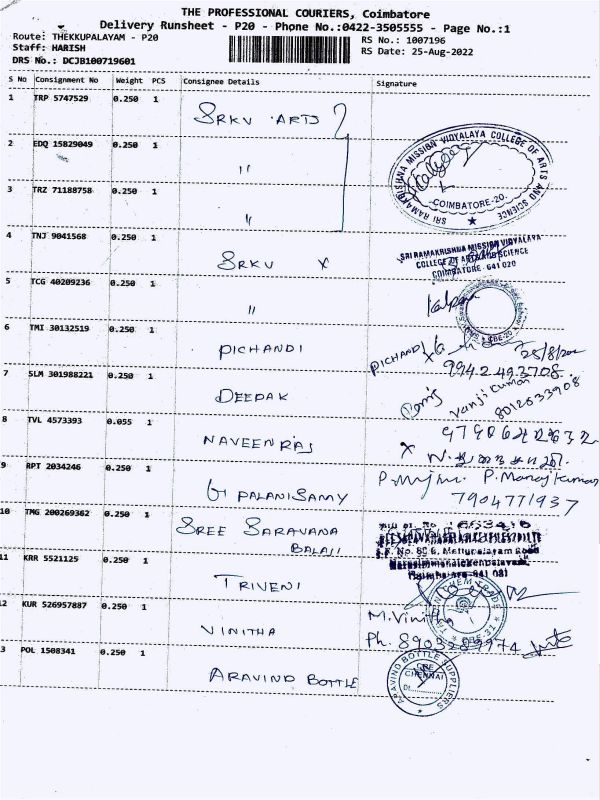 THE PROFESSIONAL COURIERS, Coimbatore
Delivery Runsheet - P20 - Phone No.:0422-3505555 - Page No.:1
Route: THEKKUPALAYAM - P20
Staff: HARISH
DRS No.: DCJB100719601
RS No.: 1007196
RS Date: 25-Aug-2022
S No Consignment No Weight PCS Consignee Details Signature
1 TRP 5747529 0.250 1 SRKV ARTS
2 EDQ 15829049 0.250 1 "
SRI RAMAKRISHNA MISSION VIDYALAYA COLLEGE OF ARTS AND SCIENCE
COIMBATORE-20
3 TRZ 71188758 0.250 1 "
4 TNJ 9041568 0.250 1 SRKV X
SRI RAMAKRISHNA MISSION VIDYALAYA
COLLEGE OF ARTS AND SCIENCE
COIMBATORE - 641 020
5 TCG 40209236 0.250 1 "
Kalpana
CBE-20
6 TMI 30132519 0.250 1 PICHANDI
PICHANDI
99424 93708
7 SLM 301988221 0.250 1 DEEPAK
Vanjikumar
8012633908
8 TVL 4573393 0.055 1 NAVEENRAJ
X
9 RPT 2034246 0.250 1 G PALANISAMY
P. Manoj Kumar
7904771937
10 TMG 200269362 0.250 1 SREE SARAVANA
BALAJI
S.F. No. Mettupalayam Road
11 KRR 5521125 0.250 1 TRIVENI
12 KUR 526957887 0.250 1 VINITHA
M. Vinitha
Ph. 8903289974
13 POL 1508341 0.250 1 ARAVIND BOTTLE
ARAVIND BOTTLE SUPPLIERS
CBE
CHENNAI